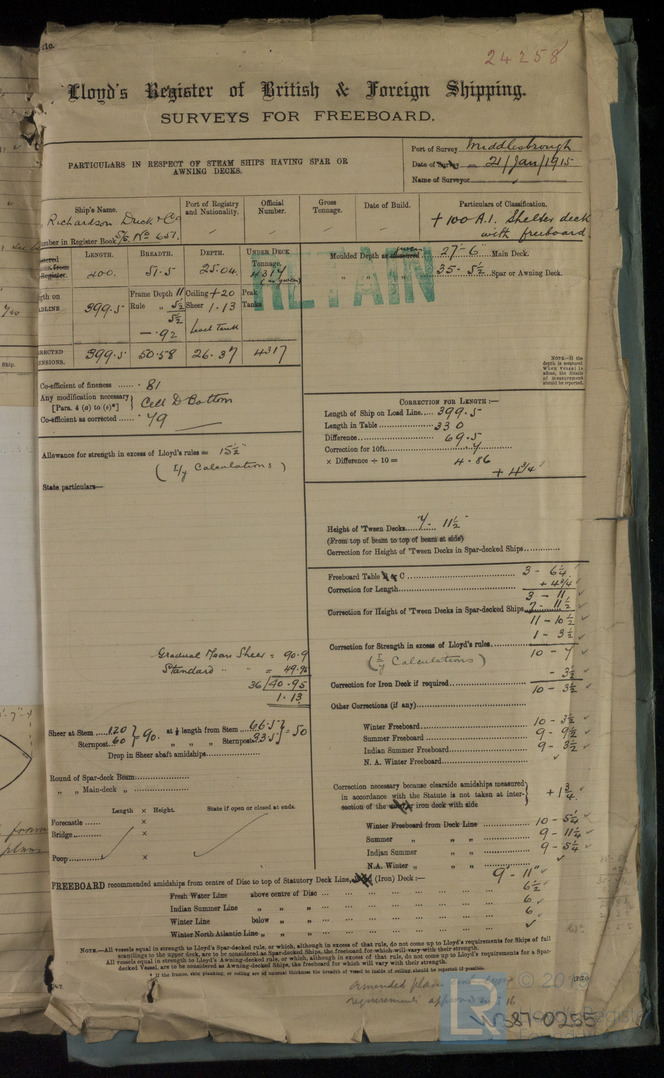 24258
Lloyd's Register of British & Foreign Shipping.
SURVEYS FOR FREEBOARD.
PARTICULARS IN RESPECT OF STEAM SHIPS HAVING SPAR OR AWNING DECKS.
Port of Survey Middlesbrough
Date of Survey 21/Jan/1915
Name of Surveyor
Ship's Name. Port of Registry and Nationality. Official Number. Gross Tonnage. Date of Build. Particulars of Classification.
Richardson Duck & Co
S/S No 651.
+100 A.1. Shelter deck with freeboard
Number in Register Book
LENGTH. BREADTH. DEPTH. UNDER DECK Tonnage.
400. 51.5 25.04 4317
RETAIN
Moulded Depth as 27-6" Main Deck.
" " " 35-5½ Spar or Awning Deck.
399.5 Frame Depth 11 Ceiling +20 Peak
Rule " 5½ Sheer 1.13 Tanks
5½
-.92
399.5 50.58 26.37 4317
NOTE.—If the depth is measured when vessel is afloat, the details of measurement should be reported.
Co-efficient of fineness .81
Any modification necessary [Para. 4 (a) to (e)*] Cell D Bottom
Co-efficient as corrected .79
CORRECTION FOR LENGTH:—
Length of Ship on Load Line 399.5
Length in Table 330
Difference 69.5
Correction for 10ft. .7
× Difference ÷ 10 = 4.86
+ 4¾
Allowance for strength in excess of Lloyd's rules = 15½"
(I/y Calculations)
State particulars—
Height of 'Tween Decks 7-11½"
(From top of beam to top of beam at side)
Correction for Height of 'Tween Decks in Spar-decked Ships
Freeboard Table C 3-6¼
Correction for Length + 4¾
3-11
Correction for Height of 'Tween Decks in Spar-decked Ships 7-11½
11-10½
1-3½
Correction for Strength in excess of Lloyd's rules 10-7
(I/y Calculations)
-3½
Correction for Iron Deck if required 10-3½
Other Corrections (if any)
Gradual Mean Sheer = 90.9
Standard " " = 49.95
36 | 40.95
1.13
Sheer at Stem 120 } 90. at ⅛ length from Stem 66.5 } = 50
Sternpost 60 " " " Sternpost 33.5
Drop in Sheer abaft amidships
Winter Freeboard 10-3½
Summer Freeboard 9-9½
Indian Summer Freeboard 9-3½
N. A. Winter Freeboard
Round of Spar-deck Beam
" " Main-deck "
Length × Height. State if open or closed at ends.
Forecastle ×
Bridge ×
Poop ×
Correction necessary because clearside amidships measured in accordance with the Statute is not taken at intersection of the iron deck with side + 1¾
Winter Freeboard from Deck Line 10-5¼
Summer " " " 9-11¼
Indian Summer " " 9-5¼
N.A. Winter " "
FREEBOARD recommended amidships from centre of Disc to top of Statutory Deck Line, (Iron) Deck:— 9'-11"
Fresh Water Line above centre of Disc 6½
Indian Summer Line " " " 6
Winter Line below " " 6
Winter North Atlantic Line " "
NOTE.—All vessels equal in strength to Lloyd's Spar-decked rule, or which, although in excess of that rule, do not come up to Lloyd's requirements for Ships of full scantlings to the upper deck, are to be considered as Spar-decked Ships, the freeboard for which will vary with their strength.
All vessels equal in strength to Lloyd's Awning-decked rule, or which, although in excess of that rule, do not come up to Lloyd's requirements for a Spar-decked Vessel, are to be considered as Awning-decked Ships, the freeboard for which will vary with their strength.
* If the frames, skin planking, or ceiling are of unusual thickness the breadth of vessel to inside of ceiling should be reported if possible.
W387-0255